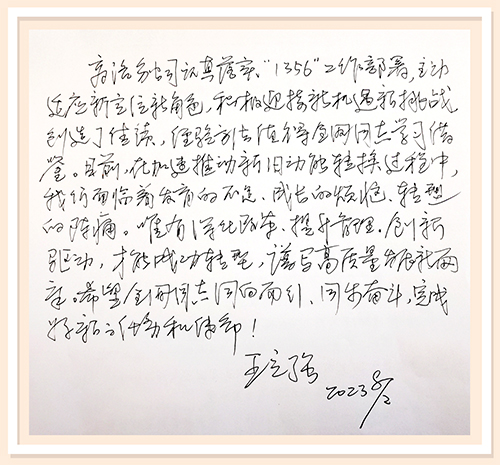 高活分公司认真落实“1356”工作部署，主动
适应新定位新角色，积极迎接新机遇新挑战
创造了佳绩，经验别具值得全网同志学习借
鉴。目前，在加速推动新旧动能转换过程中，
我们面临着发育的不适、成长的烦恼、转型
的阵痛。唯有深化改革、提升管理、创新
驱动，才能成功转型，谱写高质量发展新篇
章。希望全网同志同向而行、同步奋斗，完成
好新的任务和使命！
王立强
2023 8/2